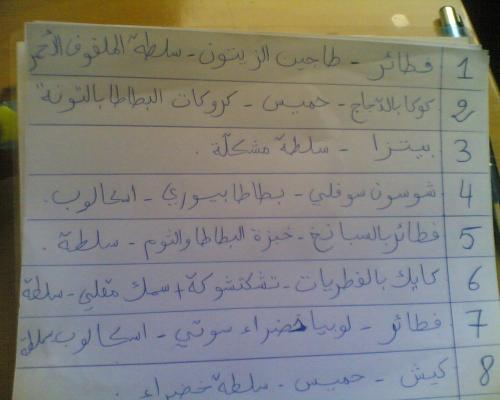 1 فطائر - طاجين الزيتون - سلطة الملفوف الأحمر
2 كوكا بالدجاج - حميس - كروكات البطاطا بالتونة
3 بيتزا - سلطة مشكلة .
4 شوسون سوفلي - بطاطا بيوري - اسكالوب .
5 فطائر بالسبانخ - خبزة البطاطا والثوم - سلطة .
6 كايك بالفطريات - تشكتشوكة + سمك مقلي - سلطة
7 فطائر - لوبيا خضراء سوتي - اسكالوب سلطة
8 كيش - حميس - سلطة خضراء .